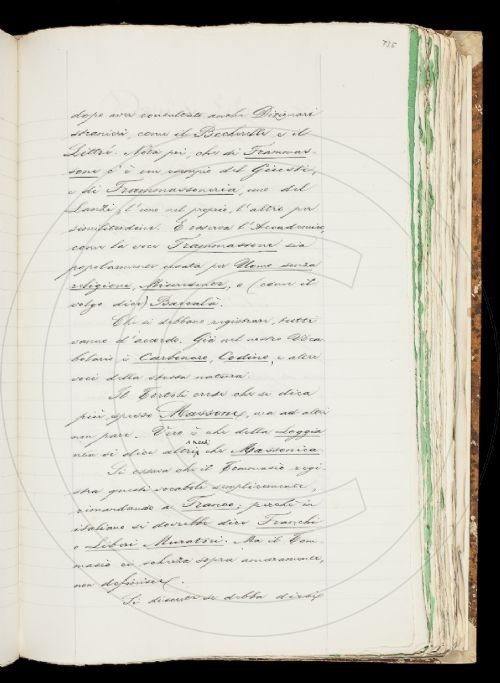 735
dopo aver consultato anche Dizionari
stranieri, come il Bescherelle e il
Littré. Nota poi, che di Frammas-
sone c'è un esempio del Giusti,
e di Frammassoneria, uno del
Lanzi; l'uno nel proprio, l'altro per
similitudine. E osserva l'Accademico,
come la voce Frammassone sia
popolarmente usata per Uomo senza
religione, Miscredente, e (come il
volgo dice) Baccalà.
Che si debbano registrare, tutti
vanno d'accordo. Già nel nostro Voca-
bolario è Carbonaro, Codino, e altre
voci della stessa natura.
Il Tortoli crede che si dica
più spesso Massoni, ma ad altri
non pare. Vero è che della Loggia
non si dice altrimenti che Massonica.
Si osserva che il Tommaseo regi-
stra questi vocaboli semplicemente,
rimandando a Franco; perchè in
italiano si dovrebbe dire Franchi
o Liberi Muratori. Ma il Tom-
maseo ci scherza sopra amaramente,
non definisce.
Si discute se debba dirsi